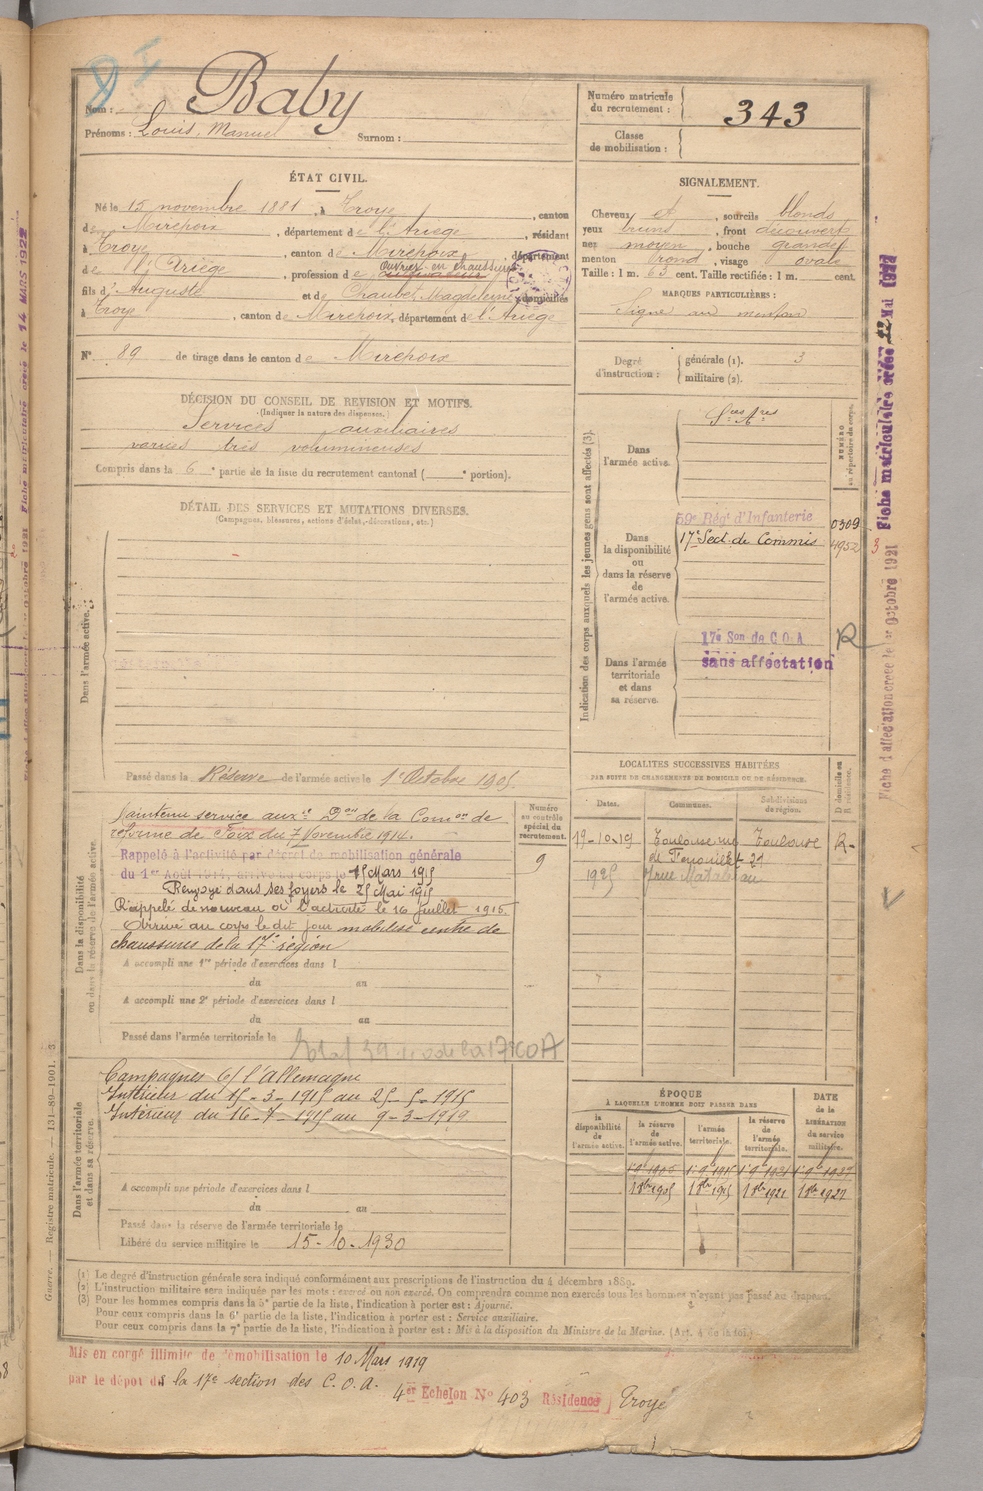 Nom : Baby
Prénoms : Louis, Manuel Surnom :
Numéro matricule du recrutement : 343
Classe de mobilisation :
ÉTAT CIVIL.
Né le 15 novembre 1881, à Troye, canton
de Mirepoix, département de l'Ariège, résidant
à Troye, canton de Mirepoix, département
de l'Ariège, profession de ouvrier en chaussures cultivateur
fils d'Auguste et de Chaubet Magdeleine, domiciliés
à Troye, canton de Mirepoix, département de l'Ariège
N° 89 de tirage dans le canton de Mirepoix
SIGNALEMENT.
Cheveux et, sourcils blonds
yeux bruns, front découvert
nez moyen, bouche grande
menton rond, visage ovale
Taille : 1 m. 65 cent. Taille rectifiée : 1 m. cent.
MARQUES PARTICULIÈRES :
Signe au menton
Degré d'instruction : générale (1). 3
militaire (2).
DÉCISION DU CONSEIL DE REVISION ET MOTIFS.
(Indiquer la nature des dispenses.)
Services auxiliaires
varices très volumineuses
Compris dans la 6e partie de la liste du recrutement cantonal ( e portion).
DÉTAIL DES SERVICES ET MUTATIONS DIVERSES.
(Campagnes, blessures, actions d'éclat, décorations, etc.)
Dans l'armée active.
Passé dans la Réserve de l'armée active le 1er Octobre 1905
Indication des corps auxquels les jeunes gens sont affectés (3).
NUMÉRO au répertoire du corps.
Dans l'armée active.
Sces Ares
Dans la disponibilité ou dans la réserve de l'armée active.
59e Régt d'Infanterie 0309
17e Sect. de Commis 4952
Dans l'armée territoriale et dans sa réserve.
17e Son de C.O.A
sans affectation
R
Dans la disponibilité ou dans la réserve de l'armée active.
Numéro au contrôle spécial du recrutement.
9
Maintenu service auxre Don de la Comon de
réforme de Foix du 7 Novembre 1914.
Rappelé à l'activité par décret de mobilisation générale
du 1er Août 1914, arrivé au corps le 15 Mars 1915
Renvoyé dans ses foyers le 25 Mai 1915
Rappelé de nouveau à l'activité le 16 juillet 1915.
Arrivé au corps le dit jour mobilisé centre de
chaussures de la 17e région
A accompli une 1re période d'exercices dans l
du au
A accompli une 2e période d'exercices dans l
du au
Passé dans l'armée territoriale le
Dans l'armée territoriale et dans sa réserve.
Campagnes c/ l'Allemagne
Intérieur du 15-3-1915 au 25-5-1915
Intérieur du 16-7-1915 au 9-3-1919
A accompli une période d'exercices dans l
du au
Passé dans la réserve de l'armée territoriale le
Libéré du service militaire le 15-10-1930
LOCALITÉS SUCCESSIVES HABITÉES
PAR SUITE DE CHANGEMENTS DE DOMICILE OU DE RÉSIDENCE.
Dates. Communes. Subdivisions de région. D domicile ou R résidence.
19-10-19 Toulouse Toulouse R
ÉPOQUE
À LAQUELLE L'HOMME DOIT PASSER DANS
DATE de la LIBÉRATION du service militaire.
la disponibilité de l'armée active. la réserve de l'armée active. l'armée territoriale. la réserve de l'armée territoriale.
(1) Le degré d'instruction générale sera indiqué conformément aux prescriptions de l'instruction du 4 décembre 1889.
(2) L'instruction militaire sera indiquée par les mots : exercé ou non exercé. On comprendra comme non exercés tous les hommes n'ayant pas passé au drapeau.
(3) Pour les hommes compris dans la 5e partie de la liste, l'indication à porter est : Ajourné.
Pour ceux compris dans la 6e partie de la liste, l'indication à porter est : Service auxiliaire.
Pour ceux compris dans la 7e partie de la liste, l'indication à porter est : Mis à la disposition du Ministre de la Marine. (Art. 4 de la loi.)
Mis en congé illimité de démobilisation le 10 Mars 1919
par le dépôt de la 17e section des C.O.A.
4er Echelon N° 403 Résidence Troye
Guerre. — Registre matricule. — 131-89-1901. 3.
Fiche matriculaire créée le 14 MARS 1922
Fiche d'affectation créée le 1er Octobre 1921